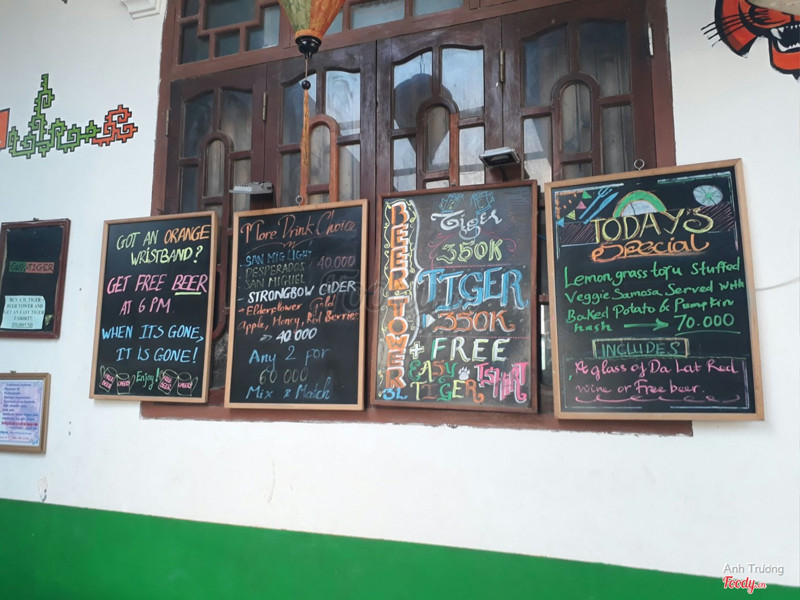 GOT AN ORANGE
WRISTBAND?
GET FREE BEER
AT 6 PM
WHEN ITS GONE,
IT IS GONE!
Enjoy!
More Drink Choice
SAN MIG LIGHT
DESPERADOS 40.000
SAN MIGUEL
STRONGBOW CIDER
Elderflower, Gold
Apple, Honey, Red Berries
40.000
Any 2 for
60 000
Mix & Match
BEER TOWER
3L
Tiger
350K
TIGER
350K
+ FREE
EASY
TIGER
TSHIRT
TODAY'S
Special
Lemongrass tofu Stuffed
Veggie Samosa Served with
Baked Potato & Pumpkin
hash → 70.000
INCLUDES
A glass of Da Lat Red
wine or Free beer.
BUY A 3L TIGER
BEER TOWER AND
GET AN EASY TIGER
T-SHIRT!!
Anh Trương
Foody.vn